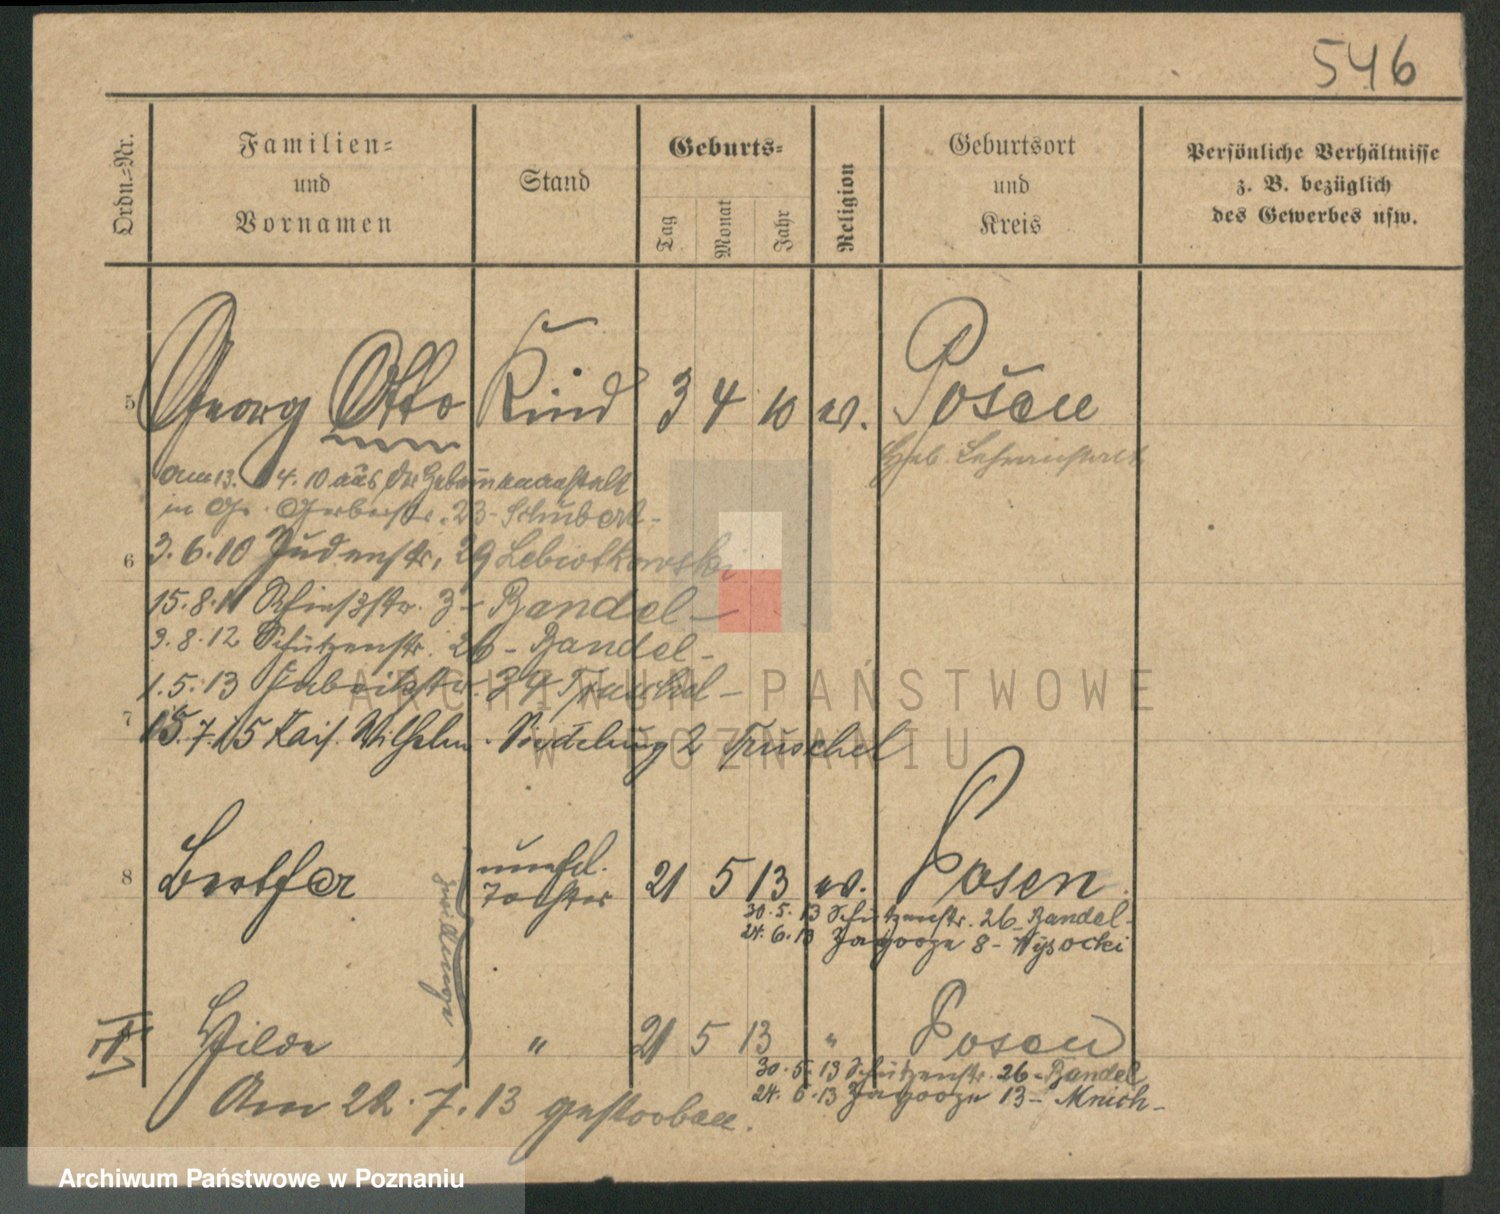 546
Ordn.=Nr.
Familien=
und
Vornamen
Stand
Geburts=
Tag
Monat
Jahr
Religion
Geburtsort
und
Kreis
Persönliche Verhältnisse
z. B. bezüglich
des Gewerbes usw.
5 Georg Otto Kind 3 4 10 ev. Posen
Geb. Lehranstalt
am 13. 4. 10 aus der Hebammenanstalt
in Gr. Gerberstr. 23 - Schubert -
6 3. 6. 10 Judenstr. 29 Lebiotkowski
15. 8. 11 Schiesstr. 3 - Bandel -
3. 8. 12 Schützenstr. 26 - Bandel -
1. 5. 13 Fabrikstr. 34 Truschel -
7 15. 7. 15 Kais. Wilhelm. Siedelung 2 Truschel
8 Bertha unehel. Tochter 21 5 13 ev. Posen
30. 5. 13 Schützenstr. 26 Bandel -
24. 6. 13 Zagorze 8 - Wysocki
Zwillinge
Hilda " 21 5 13 " Posen
30. 5. 13 Schützenstr. 26 - Bandel
24. 6. 13 Zagorze 13 - Mnich -
Am 22. 7. 13 gestorben.
ARCHIWUM PAŃSTWOWE
W POZNANIU
Archiwum Państwowe w Poznaniu